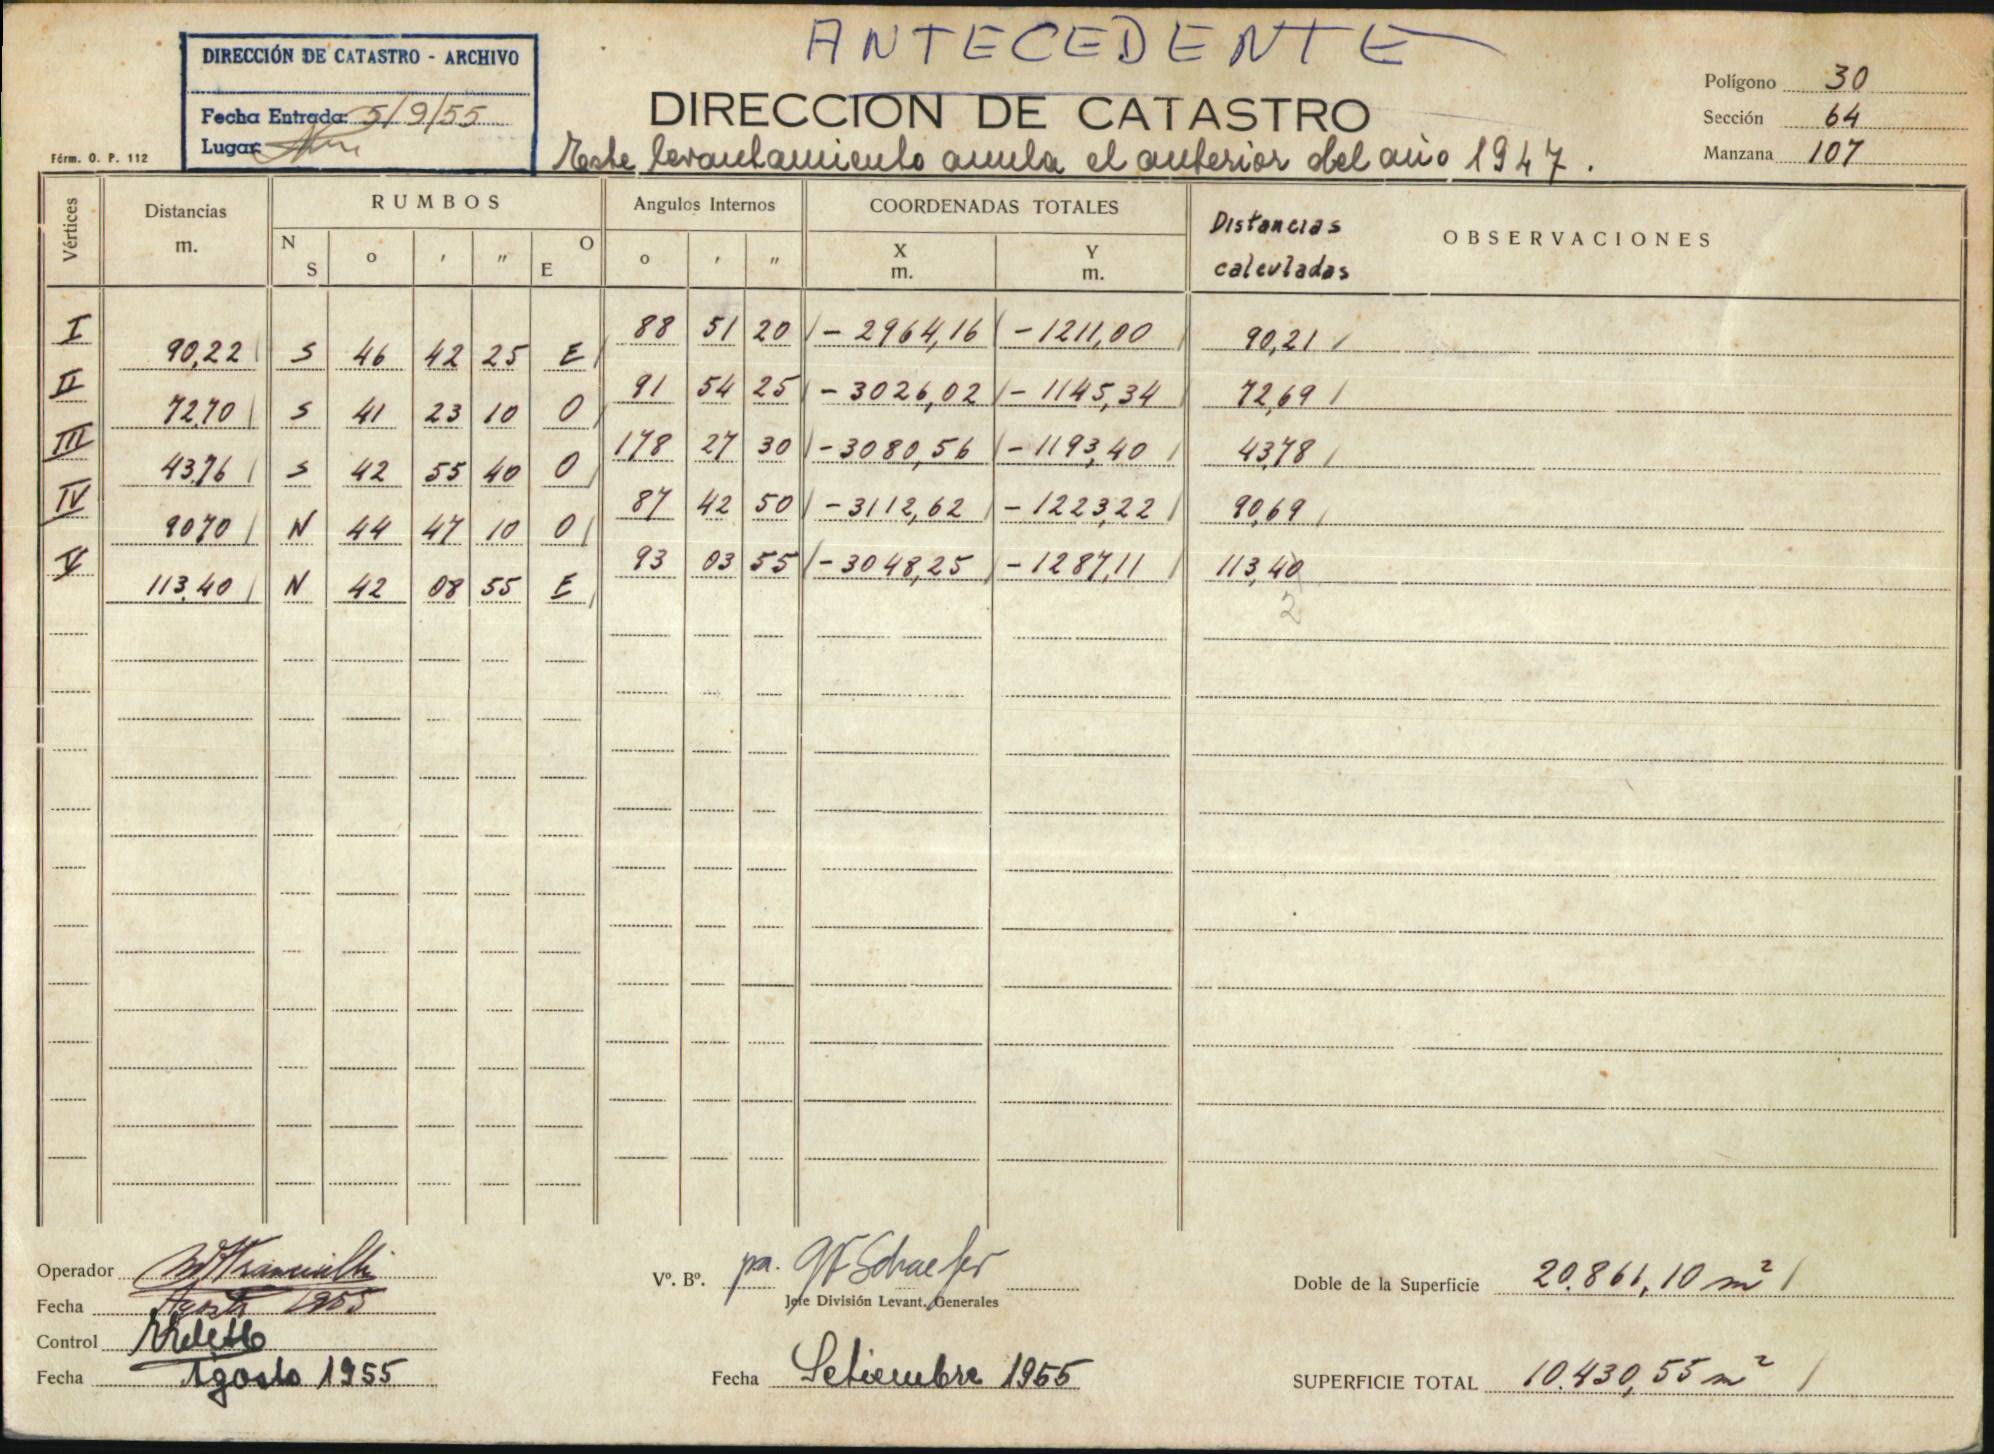 ANTECEDENTE
DIRECCIÓN DE CATASTRO - ARCHIVO
Fecha Entrada: 5/9/55
Lugar:
Férm. O. P. 112
DIRECCION DE CATASTRO
Este levantamiento anula el anterior del año 1947.
Polígono 30
Sección 64
Manzana 107
Vértices Distancias m. RUMBOS Angulos Internos COORDENADAS TOTALES Distancias calculadas OBSERVACIONES
N S o ′ ″ O E o ′ ″ X m. Y m.
I 88 51 20 - 2964,16 - 1211,00 90,21
90,22 S 46 42 25 E
II 91 54 25 - 3026,02 - 1145,34 72,69
72,70 S 41 23 10 O
III 178 27 30 - 3080,56 - 1193,40 43,78
43,76 S 42 55 40 O
IV 87 42 50 - 3112,62 - 1223,22 90,69
90,70 N 44 47 10 O
V 93 03 55 - 3048,25 - 1287,11 113,40
113,40 N 42 08 55 E
2
Operador
Fecha Agosto 1955
Control
Fecha Agosto 1955
Vº. Bº. pa. Schaefer
Jefe División Levant. Generales
Fecha Setiembre 1955
Doble de la Superficie 20.861,10 m²
SUPERFICIE TOTAL 10.430,55 m²